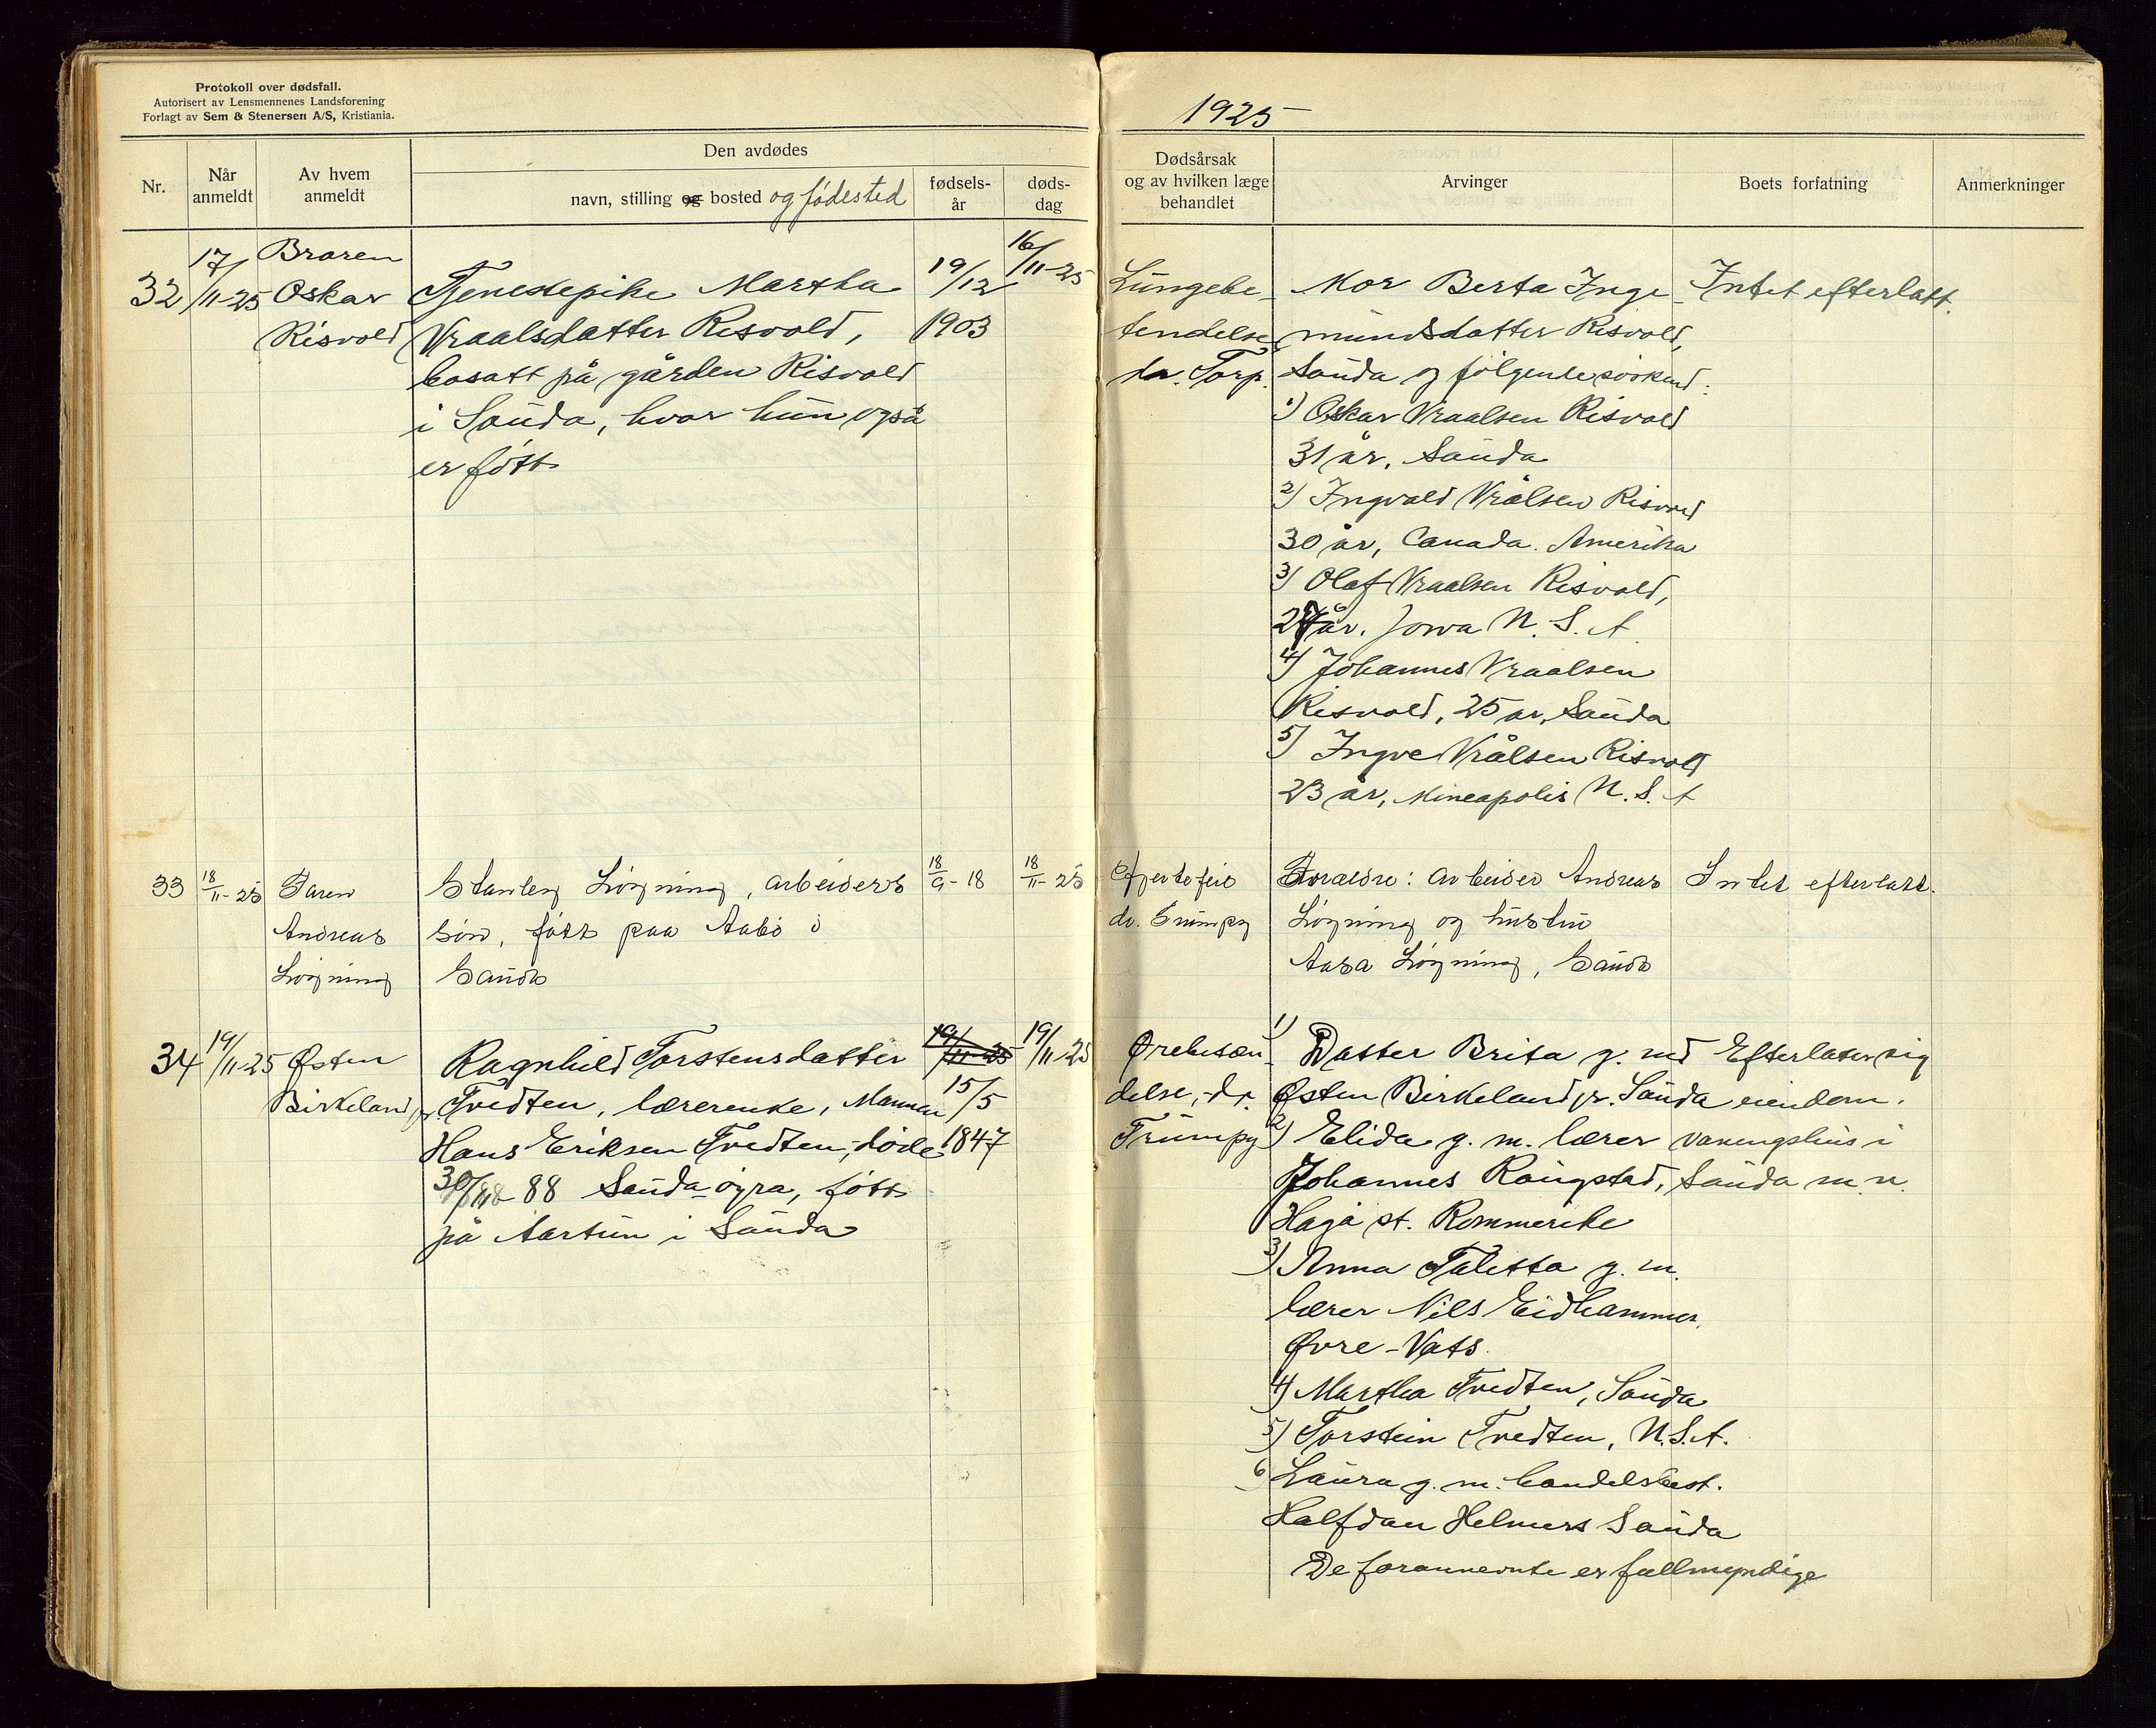 Protokoll over dødsfall.
Autorisert av Lensmennenes Landsforening
Forlagt av Sem & Stenersen A/S, Kristiania.
Nr.
Når
anmeldt
Av hvem
anmeldt
Den avdødes
navn, stilling og bosted og fødested
fødsels-
år
døds-
dag
32
17/11-25
Broren
Oskar
Risvold
Tjenestepike Martha
Vraalsdatter Risvold,
bosatt på gården Risvold
i Sauda, hvor hun også
er født
19/12
1903
16/11-25
33
18/11-25
Faren
Andreas
Løgning
Stanley Løgning, arbeiders
søn, født paa Aabø i
Sauda
18/9-18
18/11-25
34
19/11-25
Østen
Birkeland jr.
Ragnhild Torstensdatter
Tvedten, lærerenke, Mannen
Hans Eriksen Tvedten, døde
30/11-88 Sauda-øyra, født
på Aartun i Sauda
19/11-25
15/5
1847
19/11-25
1925
Dødsårsak
og av hvilken læge
behandlet
Arvinger
Boets forfatning
Anmerkninger
Lungebe-
tendelse
dr. Torp.
Mor Berta Inge-
mundsdatter Risvold,
Sauda og følgende søsken:
1) Oskar Vraalsen Risvold
31 år, Sauda
2) Ingvald Vrålsen Risvold
30 år, Canada. Amerika
3) Olaf Vraalsen Risvold,
27 år. Jowa U. S. A.
4) Johannes Vraalsen
Risvold, 25 år, Sauda
5) Ingve Vrålsen Risvold
23 år, Mineapolis U. S. A
Intet efterlatt.
Hjertefeil
dr. Trumpy
Foreldre: arbeider Andreas
Løgning og hustru
Aasa Løgning, Sauda
Intet efterlatt.
Ørebeten-
delse, dr.
Trumpy
1) Datter Brita g. med
Østen Birkeland jr. Sauda
2) Elida g. m. lærer
Johannes Raugstad,
Haga st. Rommerike
3) Anna Talitta g. m.
lærer Nils Eidhammer
Øvre-Vats.
4) Martha Tvedten, Sauda
5) Torstein Tvedten, U.S.A.
6) Laura g. m. handelsbest.
Halfdan Helmers Sauda
De forannevnte er fullmyndige
Efterlater sig
eiendom.
vaaningshus i
Sauda m. v.